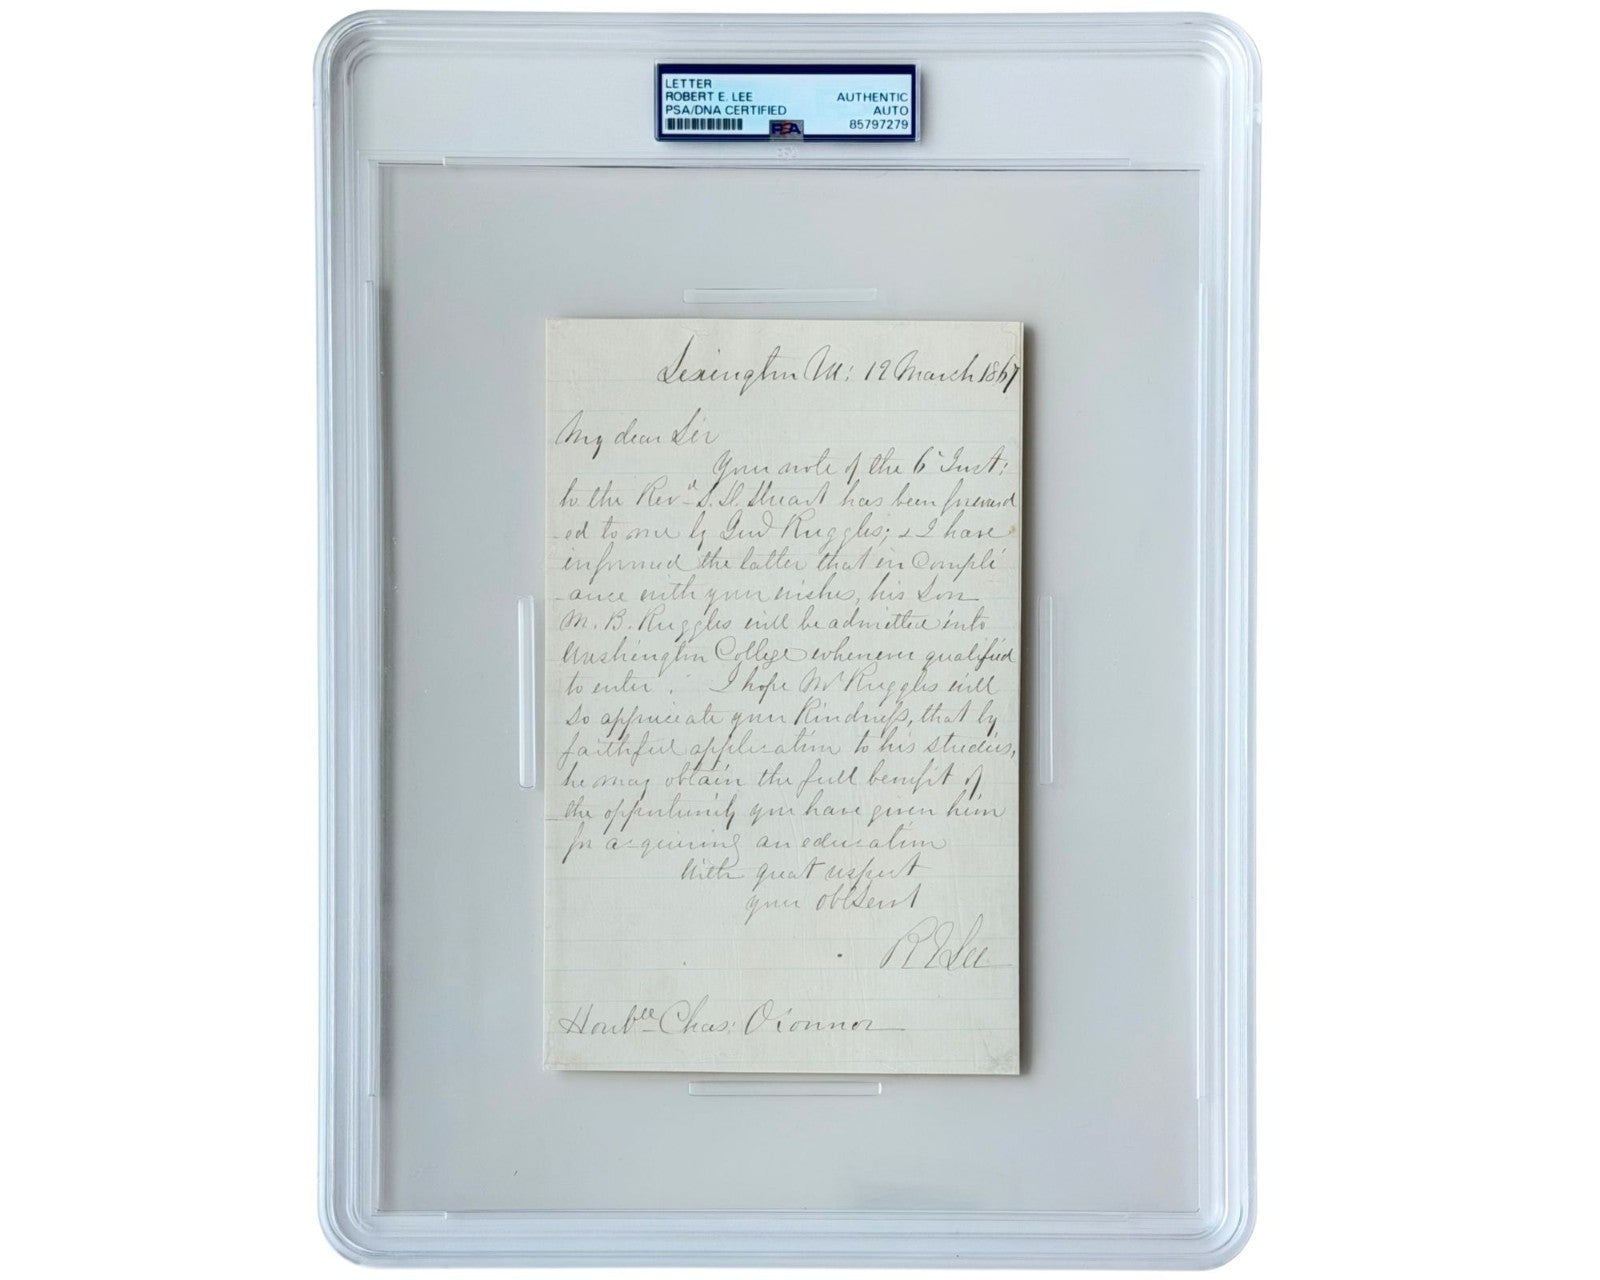 LETTER
ROBERT E. LEE
PSA/DNA CERTIFIED
AUTHENTIC
AUTO
85797279
PSA
Lexington Va: 12 March 1867
My dear Sir
Your note of the 6 Inst:
to the Revd S. D. Stuart has been forward
-ed to me by Genl Ruggles; & I have
informed the latter that in compli
-ance with your wishes, his Son
M. B. Ruggles will be admitted into
Washington College whenever qualified
to enter. I hope Mr Ruggles will
so appreciate your Kindness, that by
faithful application to his studies,
he may obtain the full benefit of
the opportunity you have given him
for acquiring an education
With great respect
your obt Servt
R E Lee
Honble Chas: O'Connor